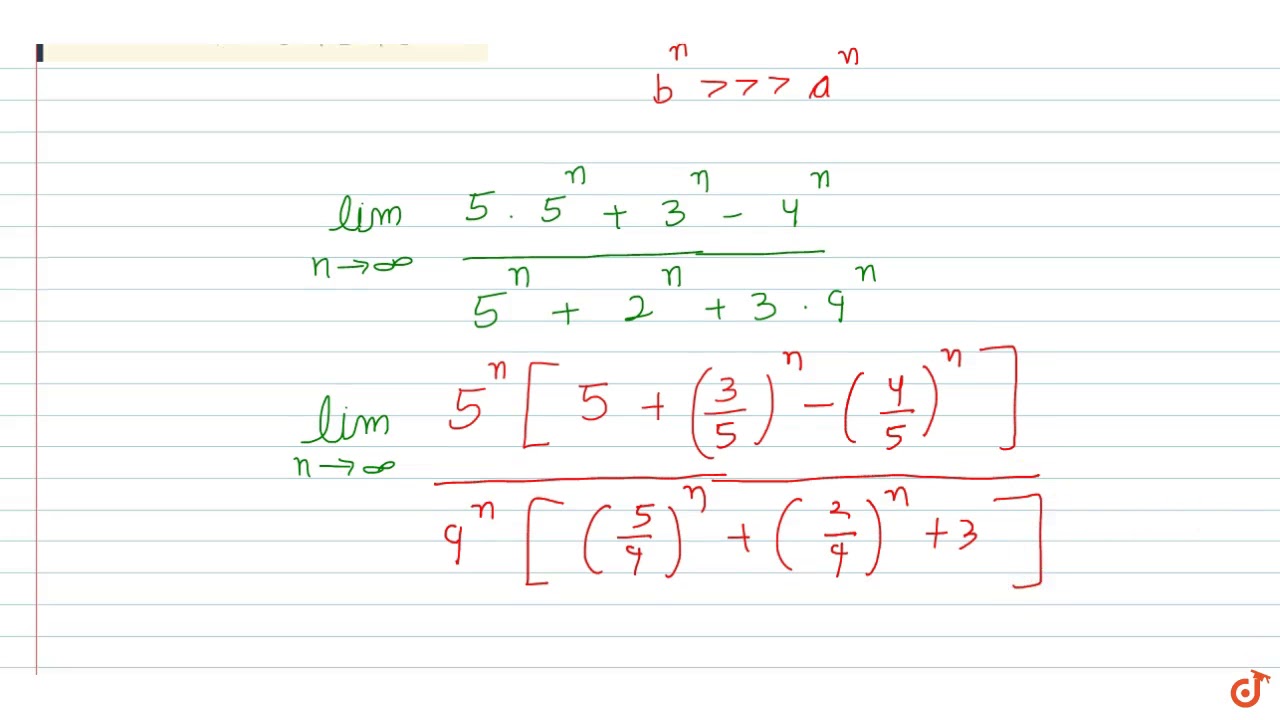 bⁿ >>> aⁿ
lim n→∞ (5 · 5ⁿ + 3ⁿ − 4ⁿ) / (5ⁿ + 2ⁿ + 3 · 9ⁿ)
lim n→∞ 5ⁿ [ 5 + (3/5)ⁿ − (4/5)ⁿ ] / 9ⁿ [ (5/9)ⁿ + (2/9)ⁿ + 3 ]